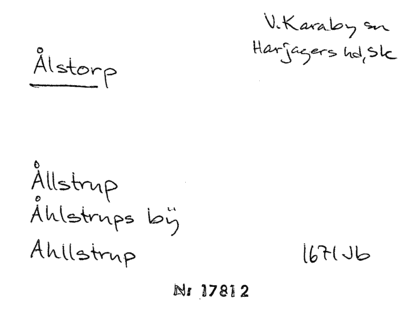 V. Karaby sn
Harjagers hd, Sk
Ålstorp
Ållstrup
Åhlstrups bÿ
Ahllstrup 1671 Jb
Nr 17812